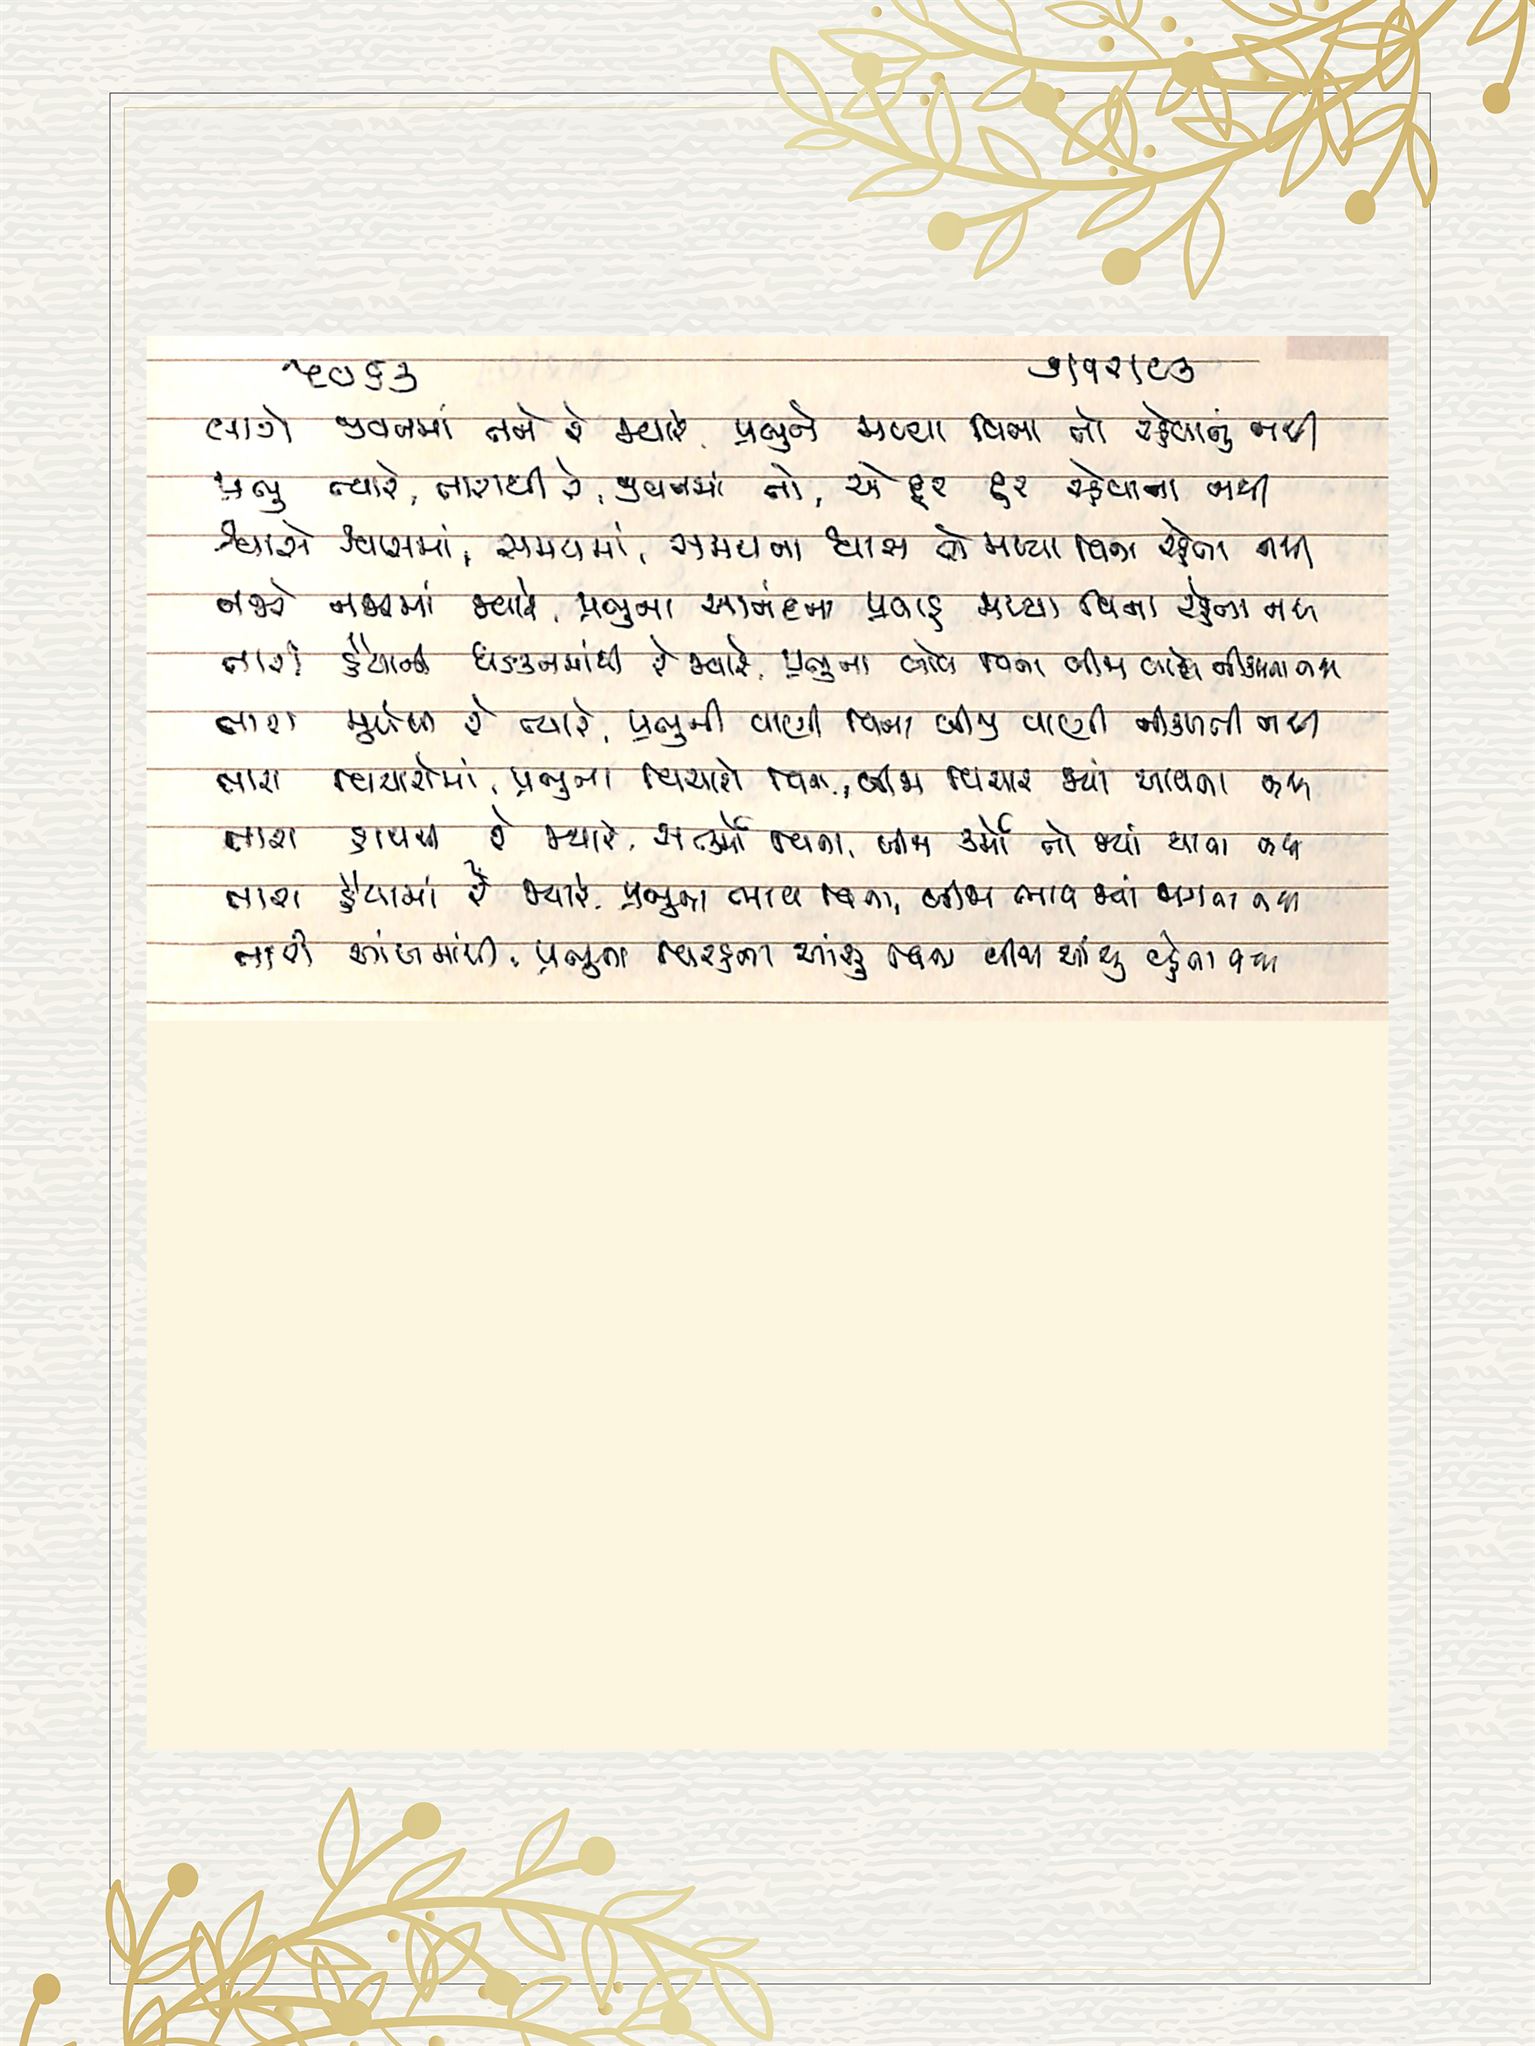 ૫૦૬૩ ૭/૧૨/૯૩
લાગે જીવનમાં તને રે જ્યારે, પ્રભુને મળ્યા વિના તો રહેવાનું નથી
પ્રભુ ત્યારે, તારાથી રે, જીવનમાં તો, એ દૂર દૂર રહેવાના નથી
શ્વાસે શ્વાસમાં, સમયમાં, સમયના શ્વાસ મળ્યા વિના રહેતા નથી
નજરે નજરમાં જ્યારે, પ્રભુના આનંદના પ્રવાહ મળ્યા વિના રહેતા નથી
તારી હૈયાની ધડકનમાંથી રે જ્યારે, પ્રભુના બોલ વિના બીજા બોલ નીકળતા નથી
તારા મુખેથી રે ત્યારે, પ્રભુની વાણી વિના બીજી વાણી નીકળતી નથી
તારા વિચારોમાં, પ્રભુના વિચારો વિના, બીજા વિચાર જ્યાં આવતા નથી
તારા હાથથી રે જ્યારે, સત્કર્મો વિના, બીજા કર્મો તો જ્યાં થાતા નથી
તારા હૈયામાં રે જ્યારે, પ્રભુના ભાવ વિના, બીજા ભાવ જ્યાં જાગતા નથી
તારી આંખમાંથી, પ્રભુના વિરહના આંસુ વિના બીજા આંસુ વહેતા નથી